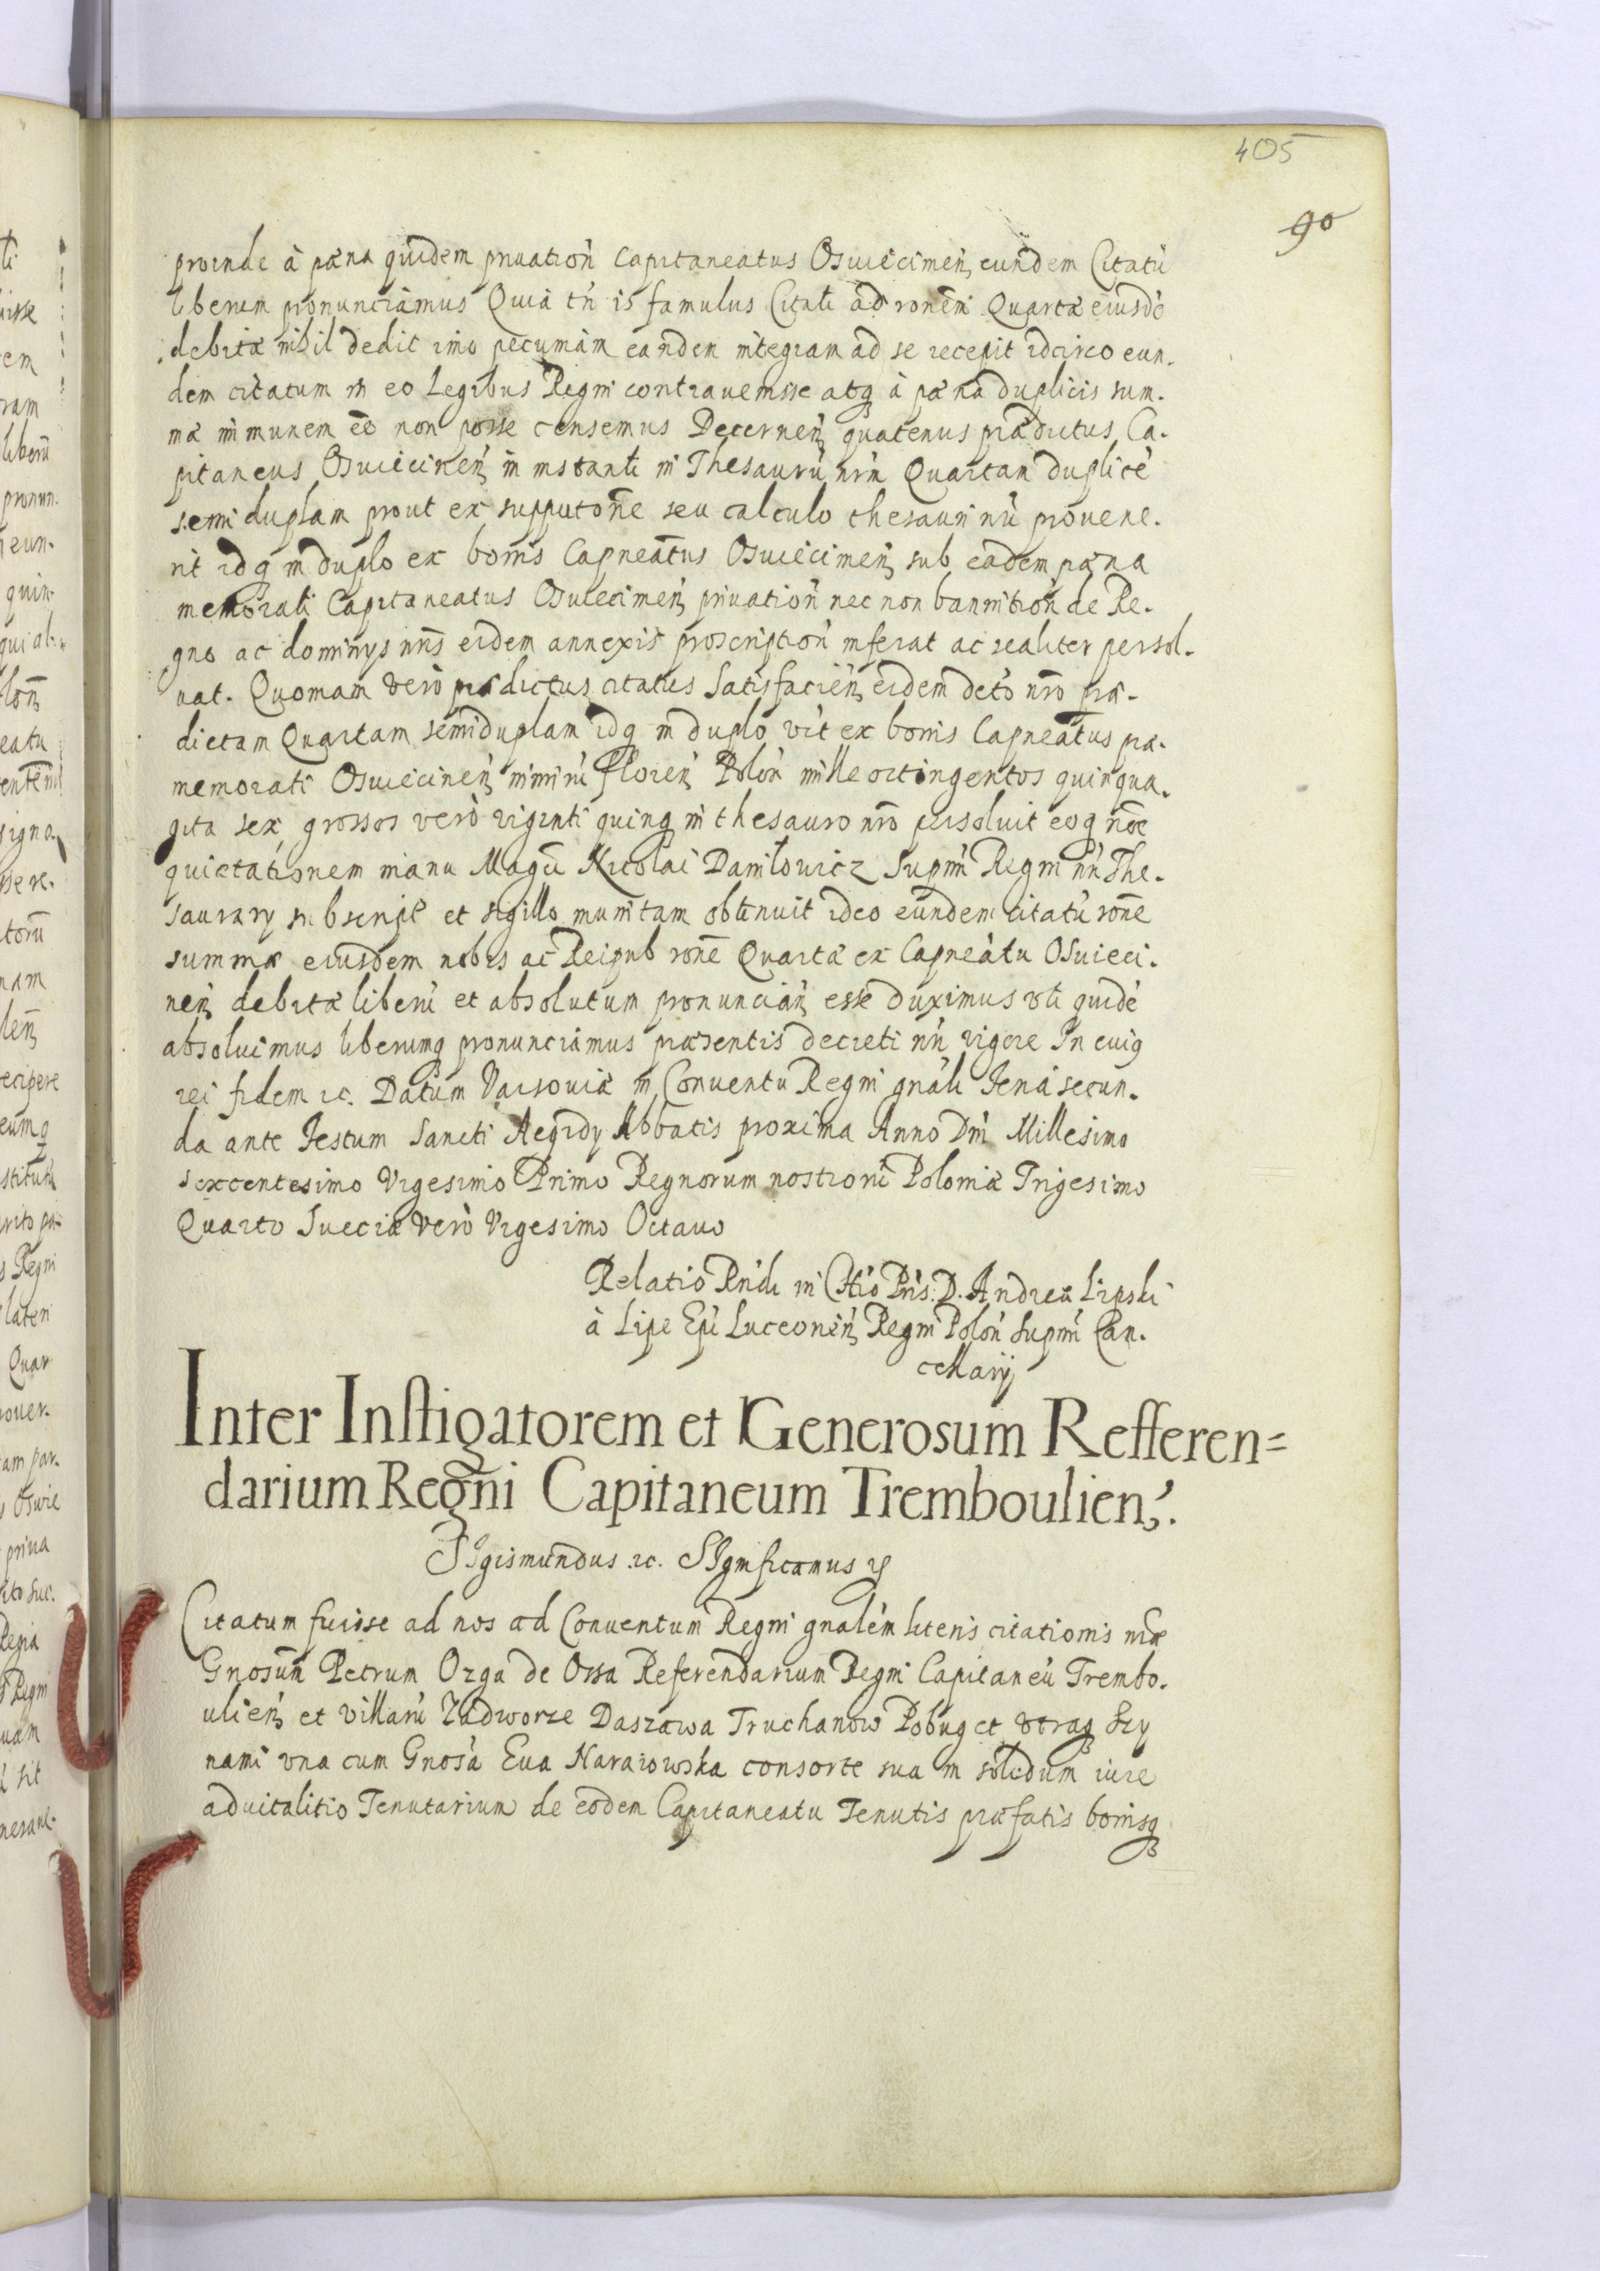 405
90
proinde à pæna quidem priuation̄ Capitaneatus Osuiecimeń eundem Citatū
liberum pronunciamus Quia tn̄ is famulus Citati ad ronem̄ Quartæ eiusdē
debitæ nihil dedit imo pecuniam eandem integram ad se recepit idcirco eun-
dem citatum in eo Legibus Regni contrauenisse atq à pæna duplicis sum-
mæ immunem eē non posse censemus Decerneń quatenus prædictus Ca-
pitaneus Osuiecineń in instanti in Thesaurū nrm̄ Quartam duplicē
semiduplam prout ex supputōne seu calculo thesauri nri̅ prouene-
rit idq in duplo ex bonis Capneātus Osuiecimeń sub eadem pæna
memorati Capitaneatus Osuiecimeń priuation̄ nec non bannition̄ de Re-
gno ac dominys nris̄ eidem annexis proscription̄ inferat ac realiter persol-
uat. Quoniam verò prædictus citatus Satisfacień eidem dctō nrō præ-
dictam Quartam semiduplam idq in duplo vīt ex bonis Capneātus præ-
memorati Osuiecineń nimirū floreń Polon̄ mille octingentos quinqua-
gita sex grossos verò viginti quinq in thesauro nrō persoluit eoq nōe
quietationem manu Magci̅ Nicolai Daniłowicz Supmi̅ Regni nri̅ The-
saurary subscript̄ et sigillo munitam obtinuit ideo eundem citatū rōne
summæ eiusdem nobis ac Reipub rōne Quartæ ex Capneātu Osuieci-
neń debitæ liberū et absolutum pronunciań esse duximus vti quidē
absoluimus liberumq pronunciamus præsentis decreti nri̅ vigore In cuiq
rei fidem ꝛc. Datum Varsouiæ in Conuentu Regni gnāli Feriá secun-
da ante Festum Sancti Aegidy Abbatis proxima Anno Dni̅ Millesimo
sexcentesimo Vigesimo Primo Regnorum nostrorū Poloniæ Trigesimo
Quarto Sueciæ verò Vigesimo Octauo
Relatio Rndi̅ in Chrō Pris̄. D. Andreæ Lipski
à Lipe Epi̅ Luceorień Regni Polon̄ Supmi̅ Can-
cellarij
Inter Instigatorem et Generosum Refferen=
darium Regni Capitaneum Tremboulień.
Sigismundus ꝛc. Significamus ꝛc
Citatum fuisse ad nos ad Conuentum Regni gnalēm literis citationis nrǣ
Gnosūm Petrum Ozga de Ossa Referendarium Regni Capitaneū Trembo-
ulień et villarū Zadworze Daszawa Truchanow Pobug et vtraq Szy
nami vna cum Gnosā Eua Naraiowska consorte sua in solidum iure
aduitalitio Tenutarium de eodem Capitaneatu Tenutis præfatis bonisq